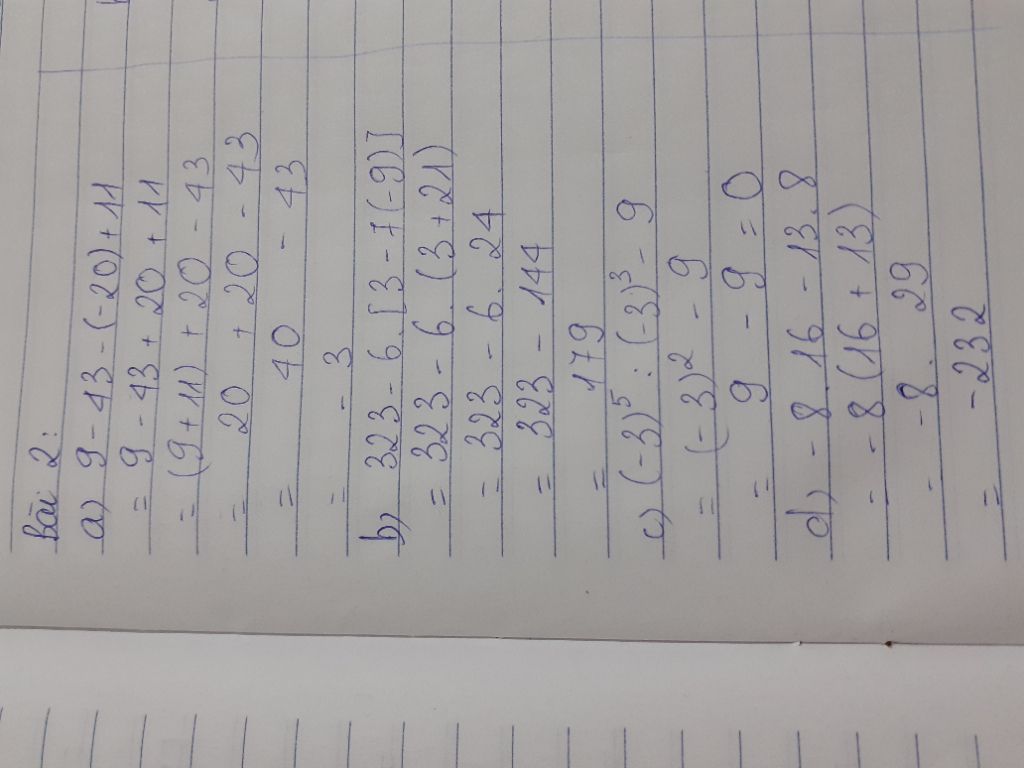 Bài 2:
a) 9 - 43 - (-20) + 11
= 9 - 43 + 20 + 11
= (9 + 11) + 20 - 43
= 20 + 20 - 43
= 40 - 43
= - 3
b) 323 - 6. [3 - 7(-9)]
= 323 - 6. (3 + 21)
= 323 - 6. 24
= 323 - 144
= 179
c) (-3)⁵ : (-3)³ - 9
= (-3)² - 9
= 9 - 9 = 0
d) - 8.16 - 13.8
= - 8(16 + 13)
= - 8. 29
= - 232